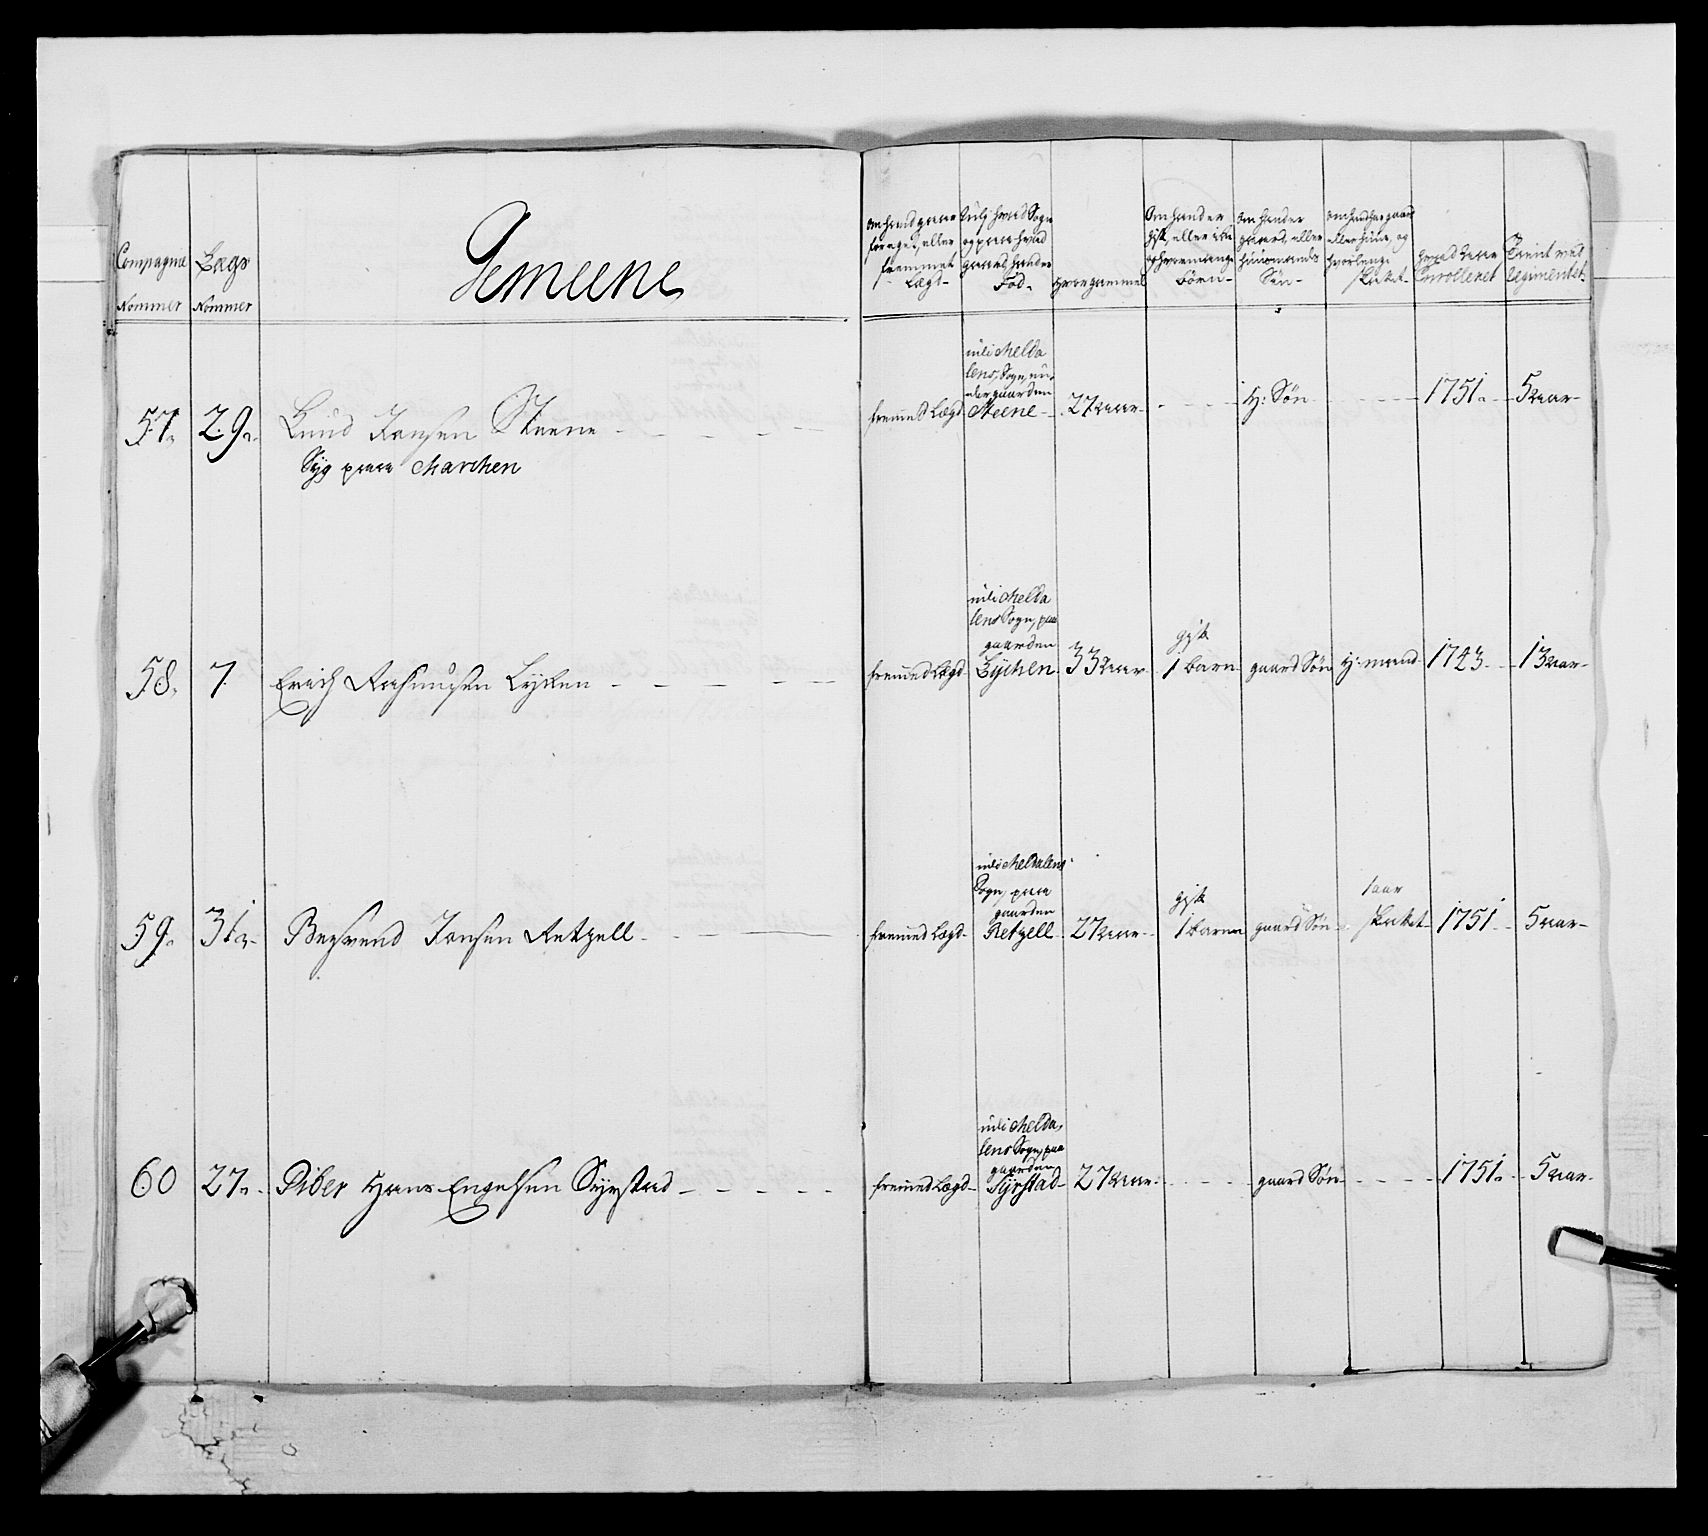 Compagnie
Nommer
Lægs
Nommer
Gemeene
om hand gaar
for eget, eller
fremmet
Lægt-
udj hvad Sogn
og paa hvad
gaard hand er
Fød-
hvor gammel
om hand er
gift, eller ikke
og hvor mange
börn-
om hand er
gaard, eller
huusmands
Sön-
om hand har gaard
eller huus, og
hvor lenge
skatet-
hvad aar
Enrolleret
Tient ved
Regimentet-
57. 29. Knud Jonsen Steene
Syg paa Marchen
fremed Lægd
udi Melda
lens Sogn, un
der gaarden
Steene
27 aar
H: Sön
1751.
5 aar
58. 7. Erich Rasmusen Lyken
fremed Lægd
udi Melda
lens Sogn, paa
gaarden
Lychen
33 aar
gift
1 barn
gaard Sön
H: mand
1743
13 aar
59. 31. Berhend Jonsen Retzell
fremed Lægd
udi Meldalens
Sogn, paa
gaarden
Retzell
27 aar
gift
1 barn
gaard Sön
1 aar
skatet
1751
5 aar
60 27. Piber Hans Engelsen Syrstad
fremed Lægd
udi Melda,
lens Sogn, paa
gaarden
Syrstad
27 aar
gaard Sön
1751.
5 aar